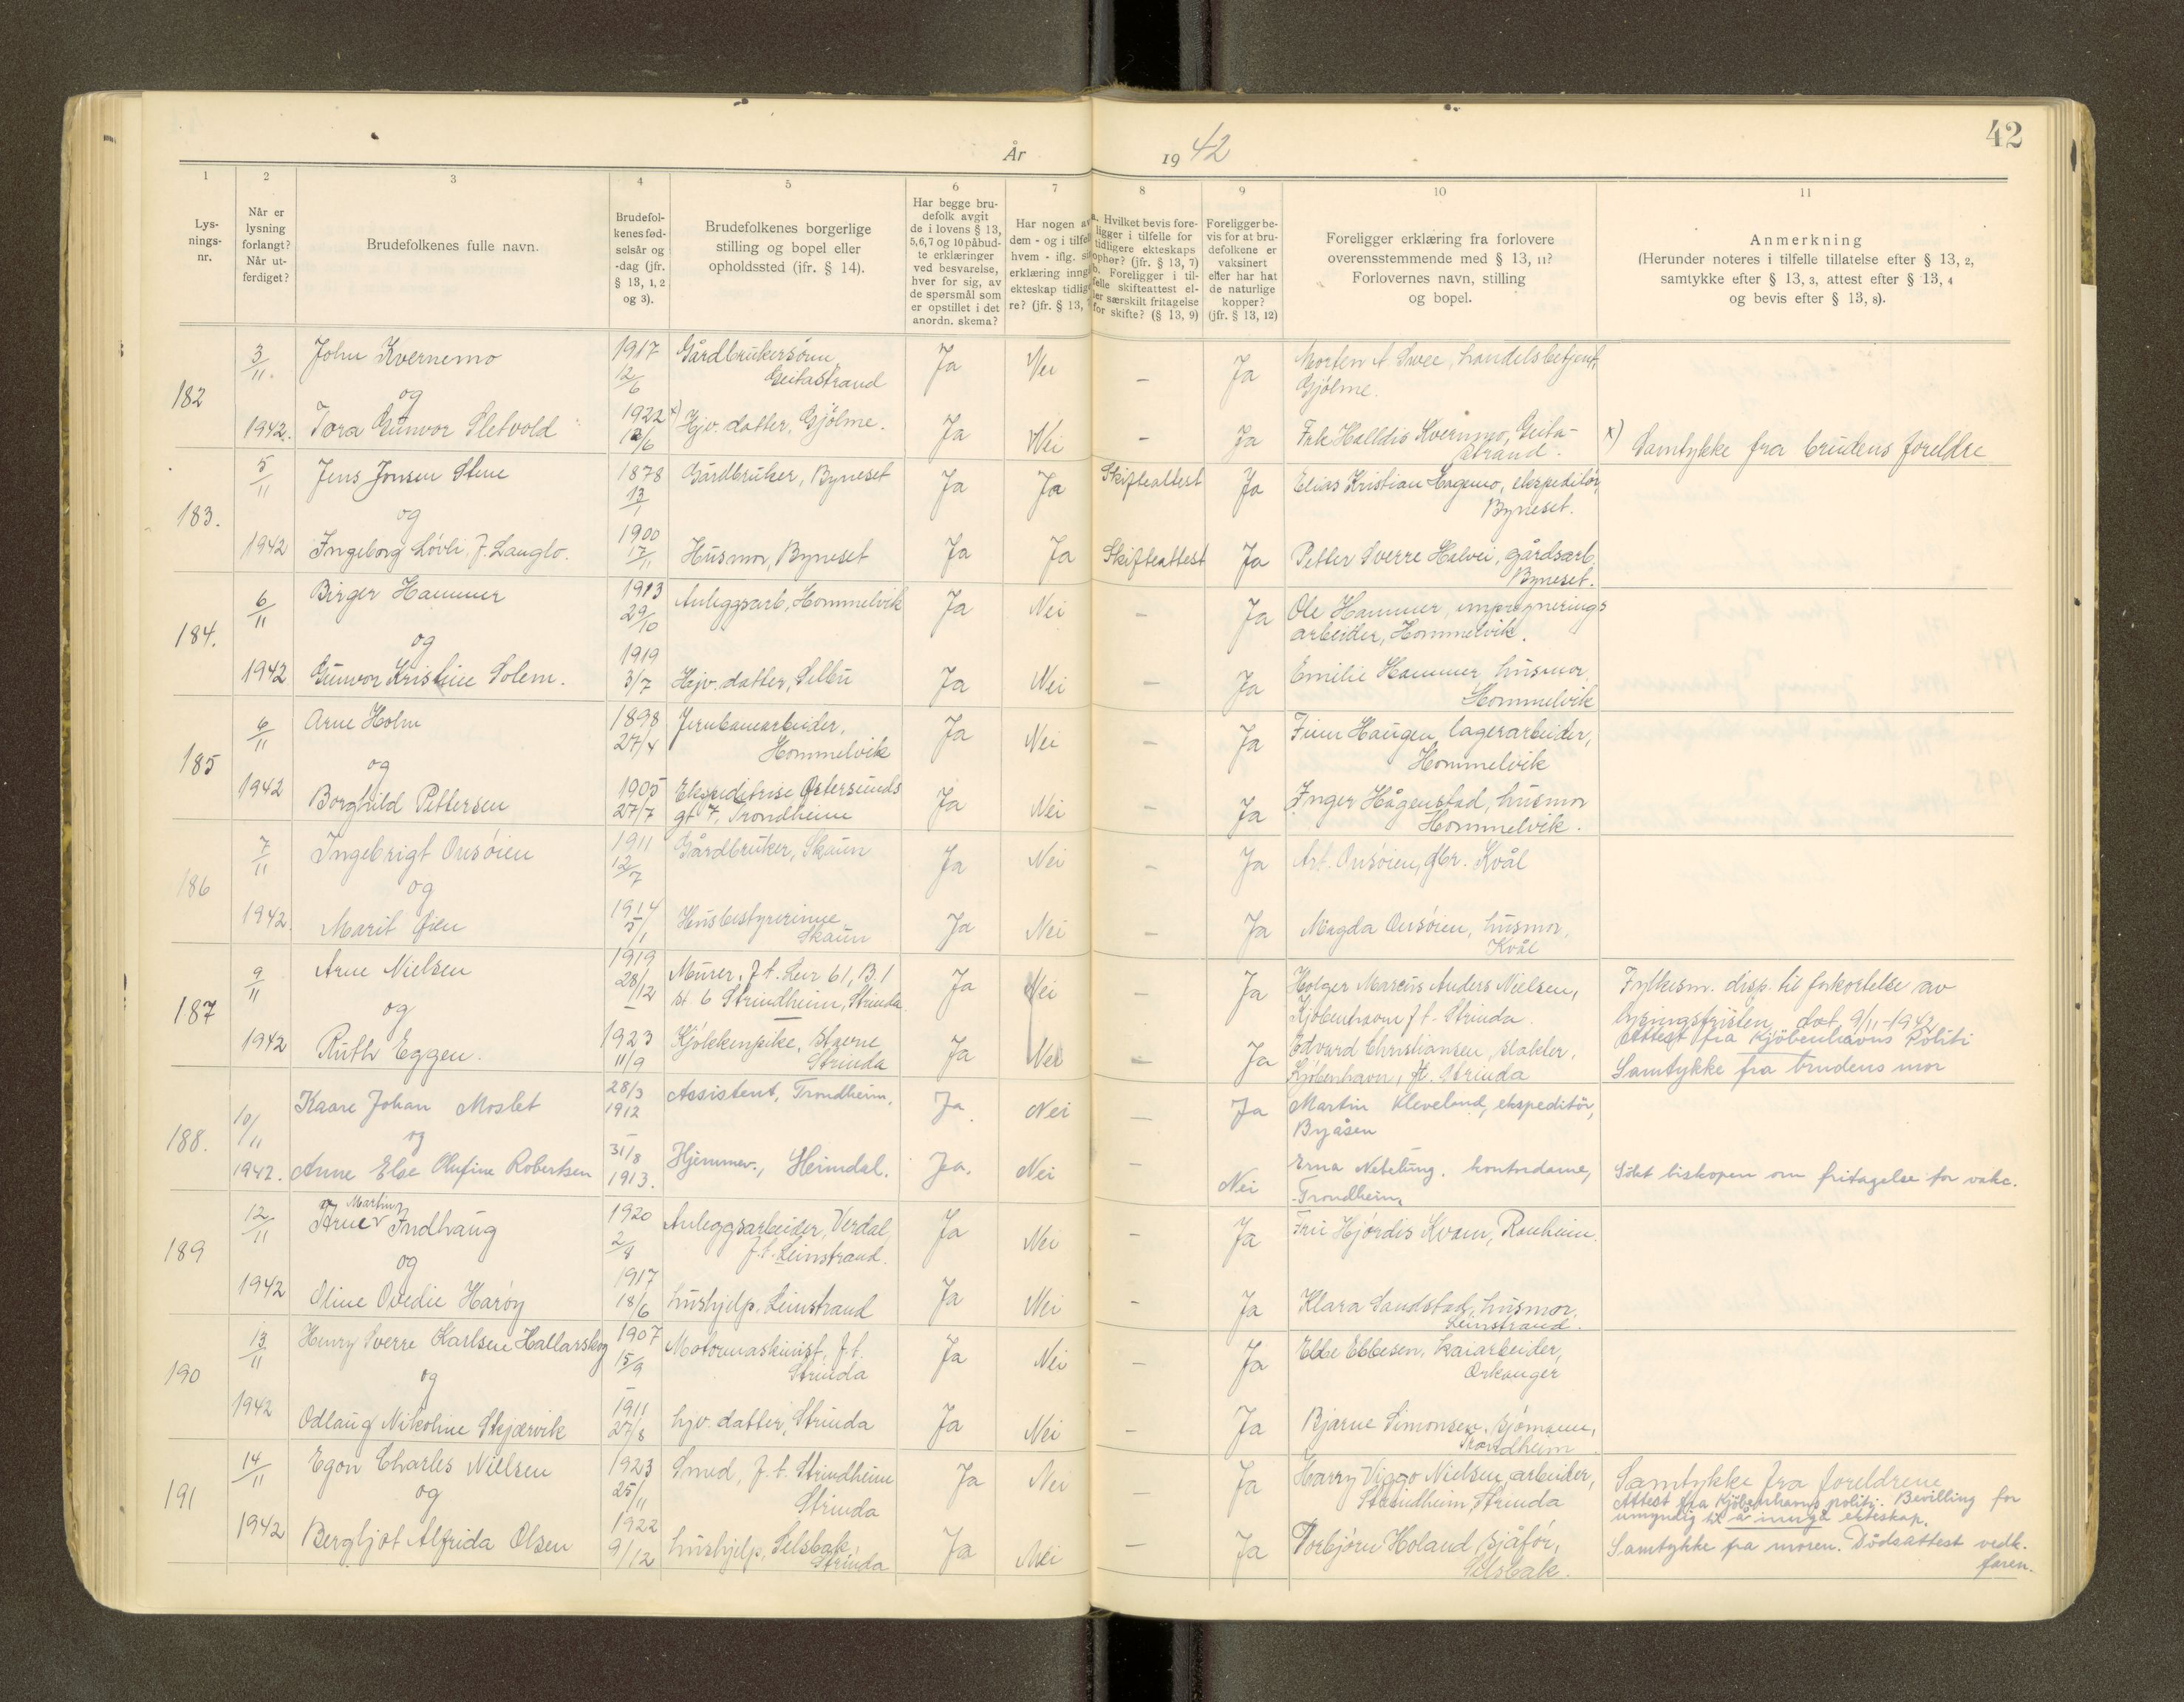 42
År 1942
1
2
3
4
5
6
7
8
9
10
11
Lys-
nings-
nr.
Når er
lysning
forlangt?
Når ut-
ferdiget?
Brudefolkenes fulle navn.
Brudefol-
kenes fød-
selsår og
-dag (jfr.
§ 13, 1, 2
og 3).
Brudefolkenes borgerlige
stilling og bopel eller
opholdssted (jfr. § 14).
Har begge bru-
defolk avgit
de i lovens § 13,
5,6,7 og 10 påbud-
te erklæringer
ved besvarelse,
hver for sig, av
de spørsmål som
er opstillet i det
anordn. skema?
Har nogen av
dem - og i tilfel
hvem - iflg. si
erklæring inng
ekteskap tidlig
re? (jfr. § 13,
a. Hvilket bevis fore-
ligger i tilfelle for
tidligere ekteskaps
ophør? (jfr. § 13, 7)
b. Foreligger i til-
felle skifteattest el-
ler særskilt fritagelse
for skifte? (§ 13, 9)
Foreligger be-
vis for at bru-
defolkene er
vaksinert
eller har hat
de naturlige
kopper?
(jfr. § 13, 12)
Foreligger erklæring fra forlovere
overensstemmende med § 13, 11?
Forlovernes navn, stilling
og bopel.
Anmerkning
(Herunder noteres i tilfelle tillatelse efter § 13, 2,
samtykke efter § 13, 3, attest efter § 13, 4
og bevis efter § 13, 8).
182
3/11. John Kvernemo 1917 12/6 Gårdbrukersønn, Geitastrand Ja Nei – Ja Morten A. Svee, handelsbetjent, Gjølme.
og
1942. Tora Gunvor Sletvold 1922 12/6 x) Hjv. datter, Gjølme. Ja Nei – Ja Frk Halldis Kvernmo, Geita-
strand. x) Samtykke fra brudens foreldre
183.
5/11 Jens Jonsen Stene 1878 13/1 Gårdbruker, Byneset Ja Ja Skifteattest Ja Elias Kristian Hagemo, ekspeditør,
Byneset.
og
1942 Ingeborg Løvli f. Langlo. 1900 17/11 Husmor, Byneset Ja Ja Skifteattest Ja Petter Sverre Halvei, gårdsarb.
Byneset.
184.
6/11 Birger Hammer 1913 29/10 Anleggsarb, Hommelvik Ja Nei – Ja Ole Hammer, impregnerings
arbeider, Hommelvik.
og
1942 Gunvor Kristine Solem. 1919 3/7 Hjv. datter, Selbu Ja Nei – Ja Emilie Hammer, husmor,
Hommelvik
185
6/11 Arne Holm 1898 27/4 Jernbanearbeider,
Hommelvik Ja Nei – Ja Finn Haugen, lagerarbeider,
Hommelvik
og
1942 Borghild Pettersen 1905 27/7 Ekspeditrise Østersunds
gt 7, Trondheim Ja Nei – Ja Inger Hågenstad, husmor
Hommelvik.
186
7/11 Ingebrigt Onsøien 1911 12/7 Gårdbruker, Skaun Ja Nei – Ja Art. Onsøien, gbr. Kvål
og
1942. Marit Øien 1914 5/1 Husbestyrerinne
Skaun Ja Nei – Ja Magda Onsøien, husmor,
Kvål
187
9/11 Arne Nielsen 1919 28/12 Murer, f.t. Leir 61, B.1
st 6 Strindheim, Strinda Ja Nei – Ja Holger Marcus Anders Nielsen,
Kjøbenhavn f.t. Strinda. Fylkesm. disp. til forkortelse av
lysningsfristen dat. 9/11-1942
og
1942 Ruth Eggen. 1923 11/9 Kjøkkenpike, Stavne
Strinda Ja Nei – Ja Edvard Christiansen, slakter,
Kjøbenhavn, f.t. Strinda Attest fra Kjøbenhavns Politi
Samtykke fra brudens mor
188.
10/11 Kaare Johan Moslet 28/3 1912 Assistent, Trondheim, Ja. Nei – Ja Martin Kleveland, ekspeditør,
Byåsen
og
1942. Anne Else Olufine Robertsen 31/8 1913. Hjemmev., Heimdal. Ja. Nei – Nei Erna Nebelung. kontordame,
Trondheim, Søkt biskopen om fritagelse for vakc.
189
12/11 Arne Martin Indhaug 1920 2/8 Anleggsarbeider, Verdal,
f.t. Leinstrand. Ja Nei – Ja Fru Hjørdis Kvam, Ranheim.
og
1942 Oline Ovedie Harøy 1917 18/6 hushjelp, Leinstrand Ja Nei – Ja Klara Sandstad, husmor,
Leinstrand.
190
13/11 Henry Sverre Karlsen Hallarskog 1907 15/9 Motormaskinist, f.t.
Strinda Ja Nei – Ja Ebbe Ebbesen, kaiarbeider,
Orkanger
og
1942 Odlaug Nikoline Skjærvik 1911 27/8 hjv. datter, Strinda Ja Nei – Ja Bjarne Simonsen, sjømann,
Trondheim
191
14/11 Egon Charles Nielsen 1923 25/11 Smed, f.t. Strindheim
Strinda Ja Nei – Ja Harry Viggo Nielsen, arbeider,
Strindheim, Strinda Samtykke fra foreldrene
Attest fra Kjøbenhavns politi. Bevilling for
umyndig til å inngå ekteskap.
og
1942 Bergljot Alfrida Olsen 1922 9/12 hushjelp, Selsbak,
Strinda Ja Nei – Ja Torbjørn Holand, sjåfør,
Selsbak. Samtykke fra moren. Dødsattest vedk.
faren.